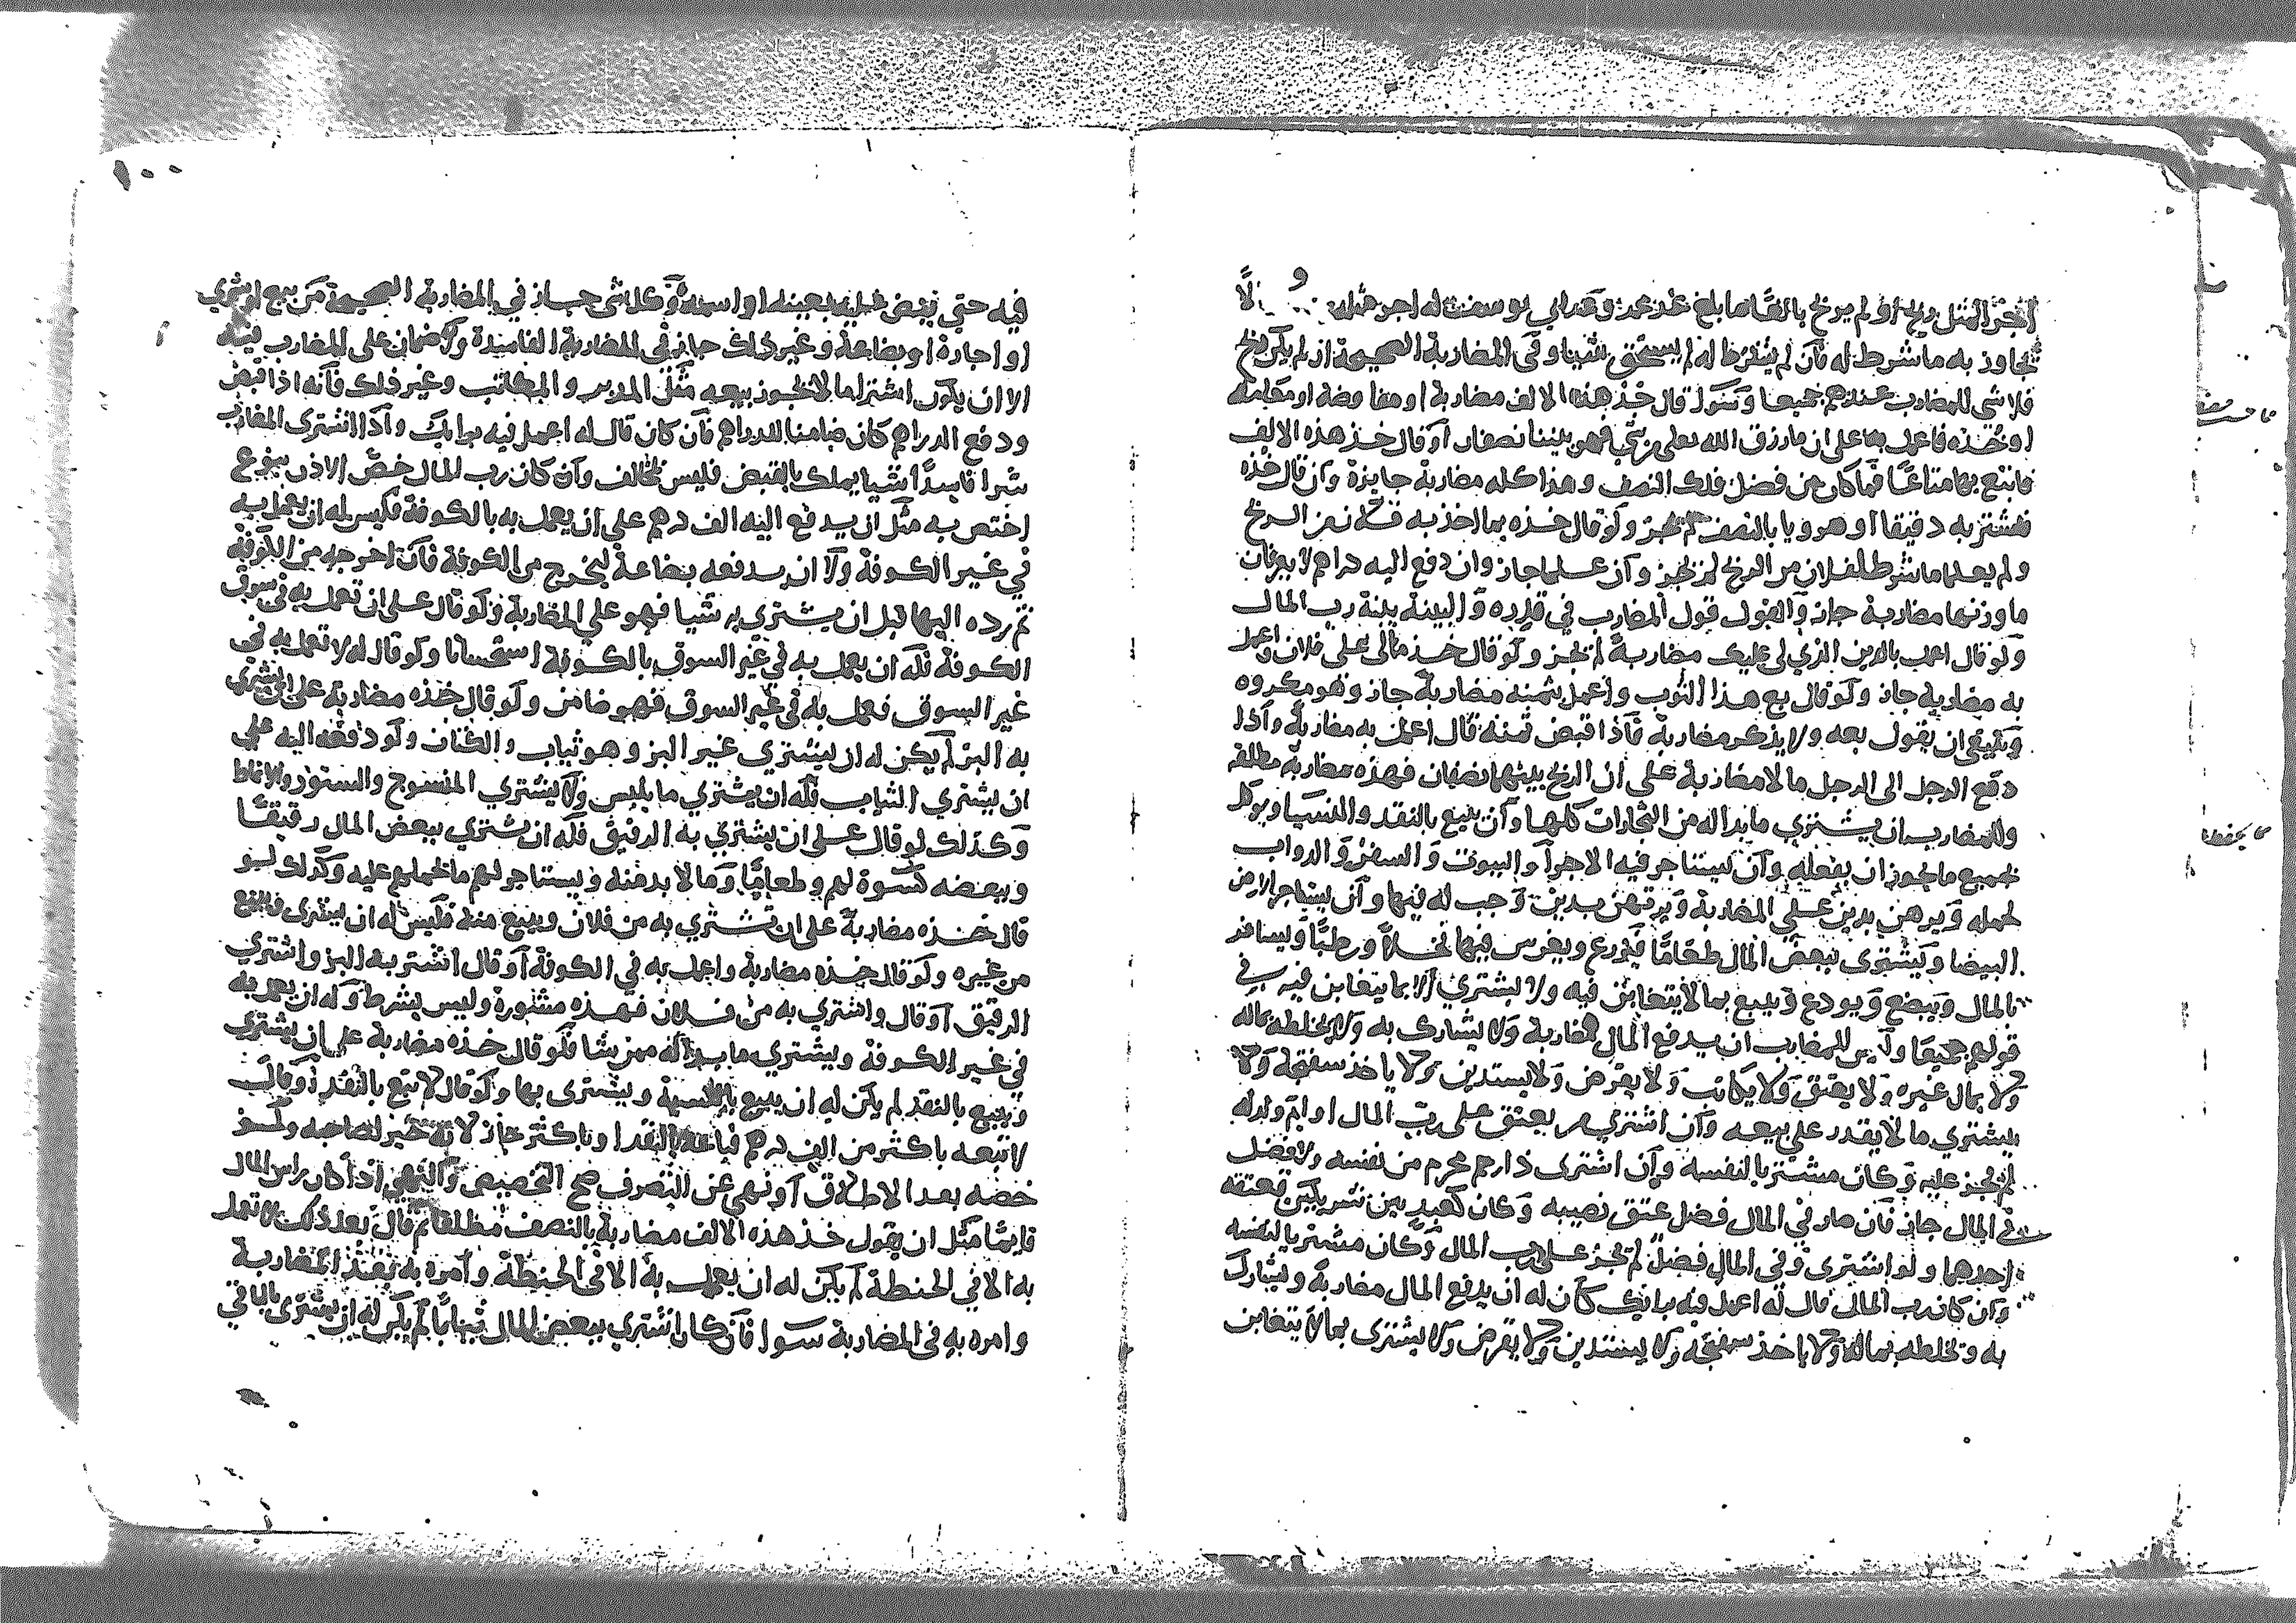 اجر المثل ربح او لم يربح بالغا ما بلغ عند محمد وعند ابي يوسف له اجر مثله ولا
يجاوز به ما شرط له فان لم يشترط له لم يستحق شيا وفي المضاربة الصحيحة ان لم يكن ربح
فلا شي للمضارب عندهم جميعا وسوا قال خذ هذه الالف مضاربة او مفاوضة او مقابلة
او خذه فاعمل بها على ان ما رزق الله تعلى من شي فهو بيننا نصفان او قال خذ هذه الالف
فابتع بها متاعا فما كان من فضل فلك النصف وهذا كله مضاربة جايزة وان قال خذه
فاشتر به دقيقا او هرويا بالنصف لم يجز ولو قال خذه بما اخذ به فلان من الربح
ولم يعلما ما شرط لفلان من الربح لم يجز وان علما جاز وان دفع اليه دراهم لا يعرفان
ما وزنها مضاربة جاز والقول قول المضارب في قدره والبينة بينة رب المال
ولو قال اعمل بالدين الذي لي عليك مضاربة لم يجز ولو قال خذ مالي على فلان واعمل
به مضاربة جاز ولو قال بع هذا الثوب واعمل بثمنه مضاربة جاز وهو مكروه
وينبغي ان يقول بعه ولا يذكر مضاربة فاذا قبض ثمنه قال اعمل به مضاربة واذا
دفع الرجل الى الرجل مالا مضاربة على ان الربح بينهما نصفان فهذه مضاربة مطلقة
وللمضارب ان يشتري ما بدا له من التجارات كلها وان يبيع بالنقد والنسيا ويوكل
بجميع ما يجوز ان يفعله وان يستاجر فيه الاجرا والبيوت والسفن والدواب
لحمله ويرهن بدين على المضاربة ويرتهن بدين وجب له فيها وان يستاجر ارض
البيضا ويشتري ببعض المال طعاما فيزرع ويغرس فيها نخلا ورطبا ويسافر
بالمال ويبضع ويودع ويبيع بما لا يتغابن فيه ولا يشتري الا بما يتغابن فيه في
قولهم جميعا وليس للمضارب ان يدفع المال مضاربة ولا يشارك به ولا يخلطه بماله
ولا بمال غيره ولا يعتق ولا يكاتب ولا يقرض ولا يستدين ولا ياخذ سفتجة ولا
يشتري ما لا يقدر على بيعه وان اشترى من يعتق على رب المال او ام ولد له
لم يجز عليه وكان مشتريا لنفسه وان اشترى ذا رحم محرم من نفسه ولا فضل
في المال جاز فان صار في المال فضل عتق نصيبه وكان كعبد بين شريكين يعتقه
احدهما ولو اشترى وفي المال فضل لم يجز على رب المال وكان مشتريا لنفسه
وان كان رب المال قال له اعمل فيه برايك كان له ان يدفع المال مضاربة ويشارك
به ويخلطه بماله ولا ياخذ سفتجة ولا يستدين ولا يقرض ولا يشتري بما لا يتغابن
١٠٠
فيه حتى ينص عليه بعينه او اسمه وكل شي جاز في المضاربة الصحيحة من بيع او شرى
او اجارة او بضاعة وغير ذلك جايز في المضاربة الفاسدة ولا ضمان على المضارب فيه
الا ان يكون اشترا ما لا يجوز بيعه مثل المدبر والمكاتب وغير ذلك فانه اذا قبض
ودفع الدراهم كان ضامنا للدراهم فان كان قال له اعمل فيه برايك واذا اشترى المضارب
شرا فاسدا شيا يملك بالقبض فليس بمخالف وان كان رب المال خص الاذن بنوع
اختص به مثل ان يدفع اليه الف درهم على ان يعمل به بالكوفة فليس له ان يعمل به
في غير الكوفة ولا ان يدفعه بضاعة ليخرج من الكوفة فان اخرجه من الكوفة
ثم رده اليها قبل ان يشتري به شيا فهو على المضاربة ولو قال على ان تعمل به في سوق
الكوفة فله ان يعمل به في غير السوق بالكوفة استحسانا ولو قال له لا تعمل به في
غير السوق فعمل به في غير السوق فهو ضامن ولو قال خذه مضاربة على ان تشتري
به البز لم يكن له ان يشتري غير البز وهو ثياب والكتان ولو دفعه اليه على
ان يشتري الثياب فله ان يشتري ما يلبس ولا يشتري المنسوج والستور والانماط
وكذلك لو قال على ان يشتري به الرقيق فله ان يشتري ببعض المال رقيقا
وببعضه كسوة لهم وطعاما وما لا بد منه ويستاجر لهم ما يحملهم عليه وكذلك لو
قال خذه مضاربة على ان تشتري به من فلان وتبيع منه فليس له ان يشتري ويبيع
من غيره ولو قال خذه مضاربة واعمل به في الكوفة او قال اشتر به البز واشتري
الرقيق او قال واشتري به من فلان فهذه مشورة وليس بشرط وله ان يعمل به
في غير الكوفة ويشتري ما بدا له ممن شا فلو قال خذه مضاربة على ان يشتري
ويبيع بالنقد لم يكن له ان يبيع بالنسية ويشتري بها ولو قال لا تبع بالنقد او قال
لا تبعه باكثر من الف درهم فباعه بالنقد او باكثر جاز لانه خير لصاحبه ولو
خصه بعد الاطلاق او نهى عن التصرف صح التخصيص والنهي اذا كان راس المال
قايما مثل ان يقول خذ هذه الالف مضاربة بالنصف مطلقا ثم قال بعد ذلك لا تعمل
به الا في الحنطة لم يكن له ان يعمل به الا في الحنطة وامره به بعقد المضاربة
وامره به في المضاربة سوا فان كان اشترى ببعض المال ثيابا لم يكن له ان يشتري بالباقي